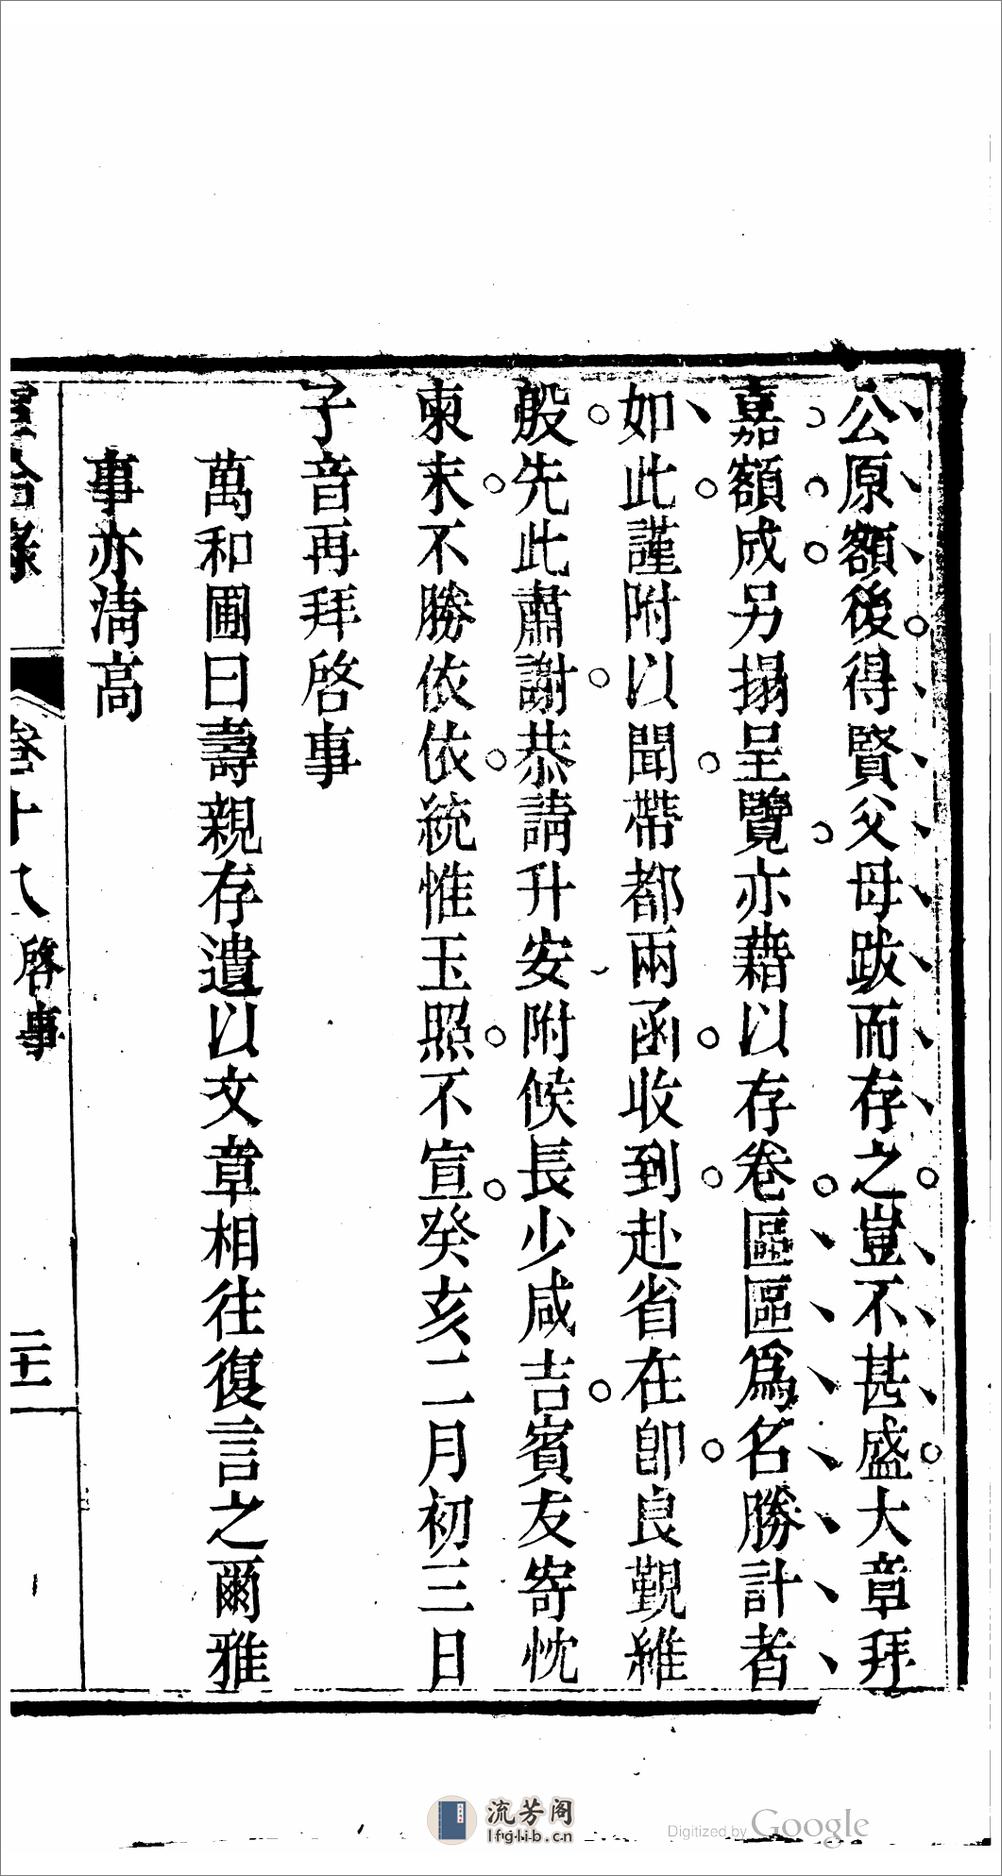 公原額後得賢父母跋而存之豈不甚盛大章拜
嘉額成另搨呈覽亦藉以存卷區區爲名勝計者
如此謹附以聞帶都兩函收到赴省在卽良覲維
殷先此肅謝恭請升安附候長少咸吉賓友寄忱
柬末不勝依依統惟玉照不宣癸亥二月初三日
子音再拜啓事
萬和圃曰壽親存遺以文章相往復言之爾雅
事亦淸高
卷十八
啓事
二十一
流芳阁
lfglib.cn
Digitized by Google